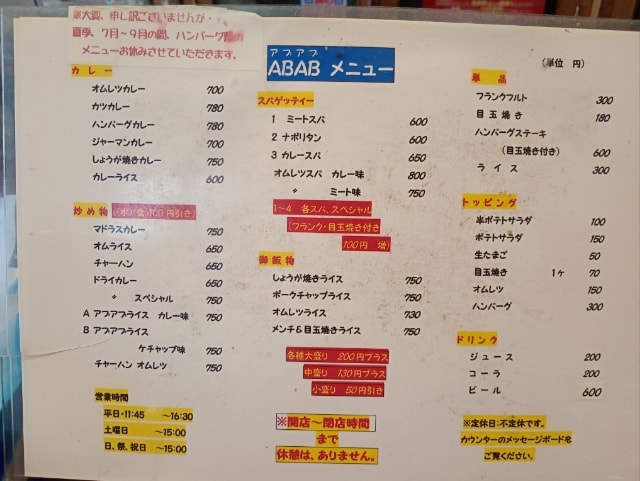 ※大変、申し訳ございませんが・
夏季、7月～9月の間、ハンバーグ類の
メニューお休みさせていただきます。
アブアブ
ABAB メニュー
(単位 円)
カレー
オムレツカレー 700
カツカレー 780
ハンバーグカレー 780
ジャーマンカレー 700
しょうが焼きカレー 750
カレーライス 600
炒め物 (水・金)100円引き)
マドラスカレー 750
オムライス 650
チャーハン 650
ドライカレー 650
〃 スペシャル 750
A アブアブライス カレー味 750
B アブアブライス
ケチャップ味 750
チャーハン オムレツ 750
営業時間
平日・11:45 ～16:30
土曜日 ～15:00
日、祭、祝日 ～15:00
スパゲッティー
1 ミートスパ 600
2 ナポリタン 600
3 カレースパ 650
オムレツスパ カレー味 800
〃 ミート味 750
1～4 各スパ、スペシャル
(フランク・目玉焼き付き
100円 増)
御飯物
しょうが焼きライス 750
ポークチャップライス 750
オムレツライス 730
メンチ&目玉焼きライス 750
各種大盛り 200円プラス
中盛り 130円プラス
小盛り 50円引き
※開店～閉店時間
まで
休憩は、ありません。
単品
フランクフルト 300
目玉焼き 180
ハンバーグステーキ
(目玉焼き付き) 600
ライス 300
トッピング
半ポテトサラダ 100
ポテトサラダ 150
生たまご 50
目玉焼き 1ヶ 70
オムレツ 150
ハンバーグ 300
ドリンク
ジュース 200
コーラ 200
ビール 600
※定休日:不定休です。
カウンターのメッセージボードを
ご覧ください。